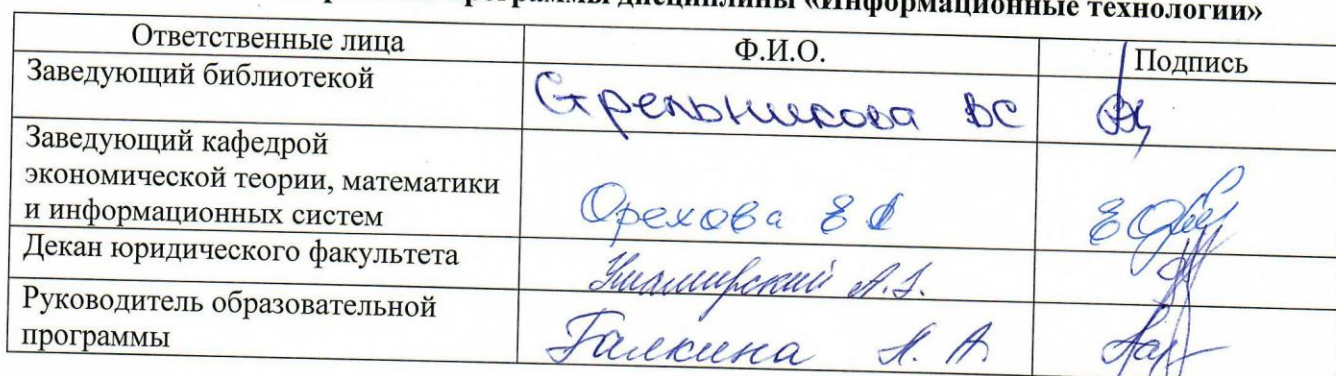 программы дисциплины «Информационные технологии»
Ответственные лица Ф.И.О. Подпись
Заведующий библиотекой Стрельникова ВС
Заведующий кафедрой
экономической теории, математики
и информационных систем Орехова Е
Декан юридического факультета А.З.
Руководитель образовательной
программы Галкина Н. А.